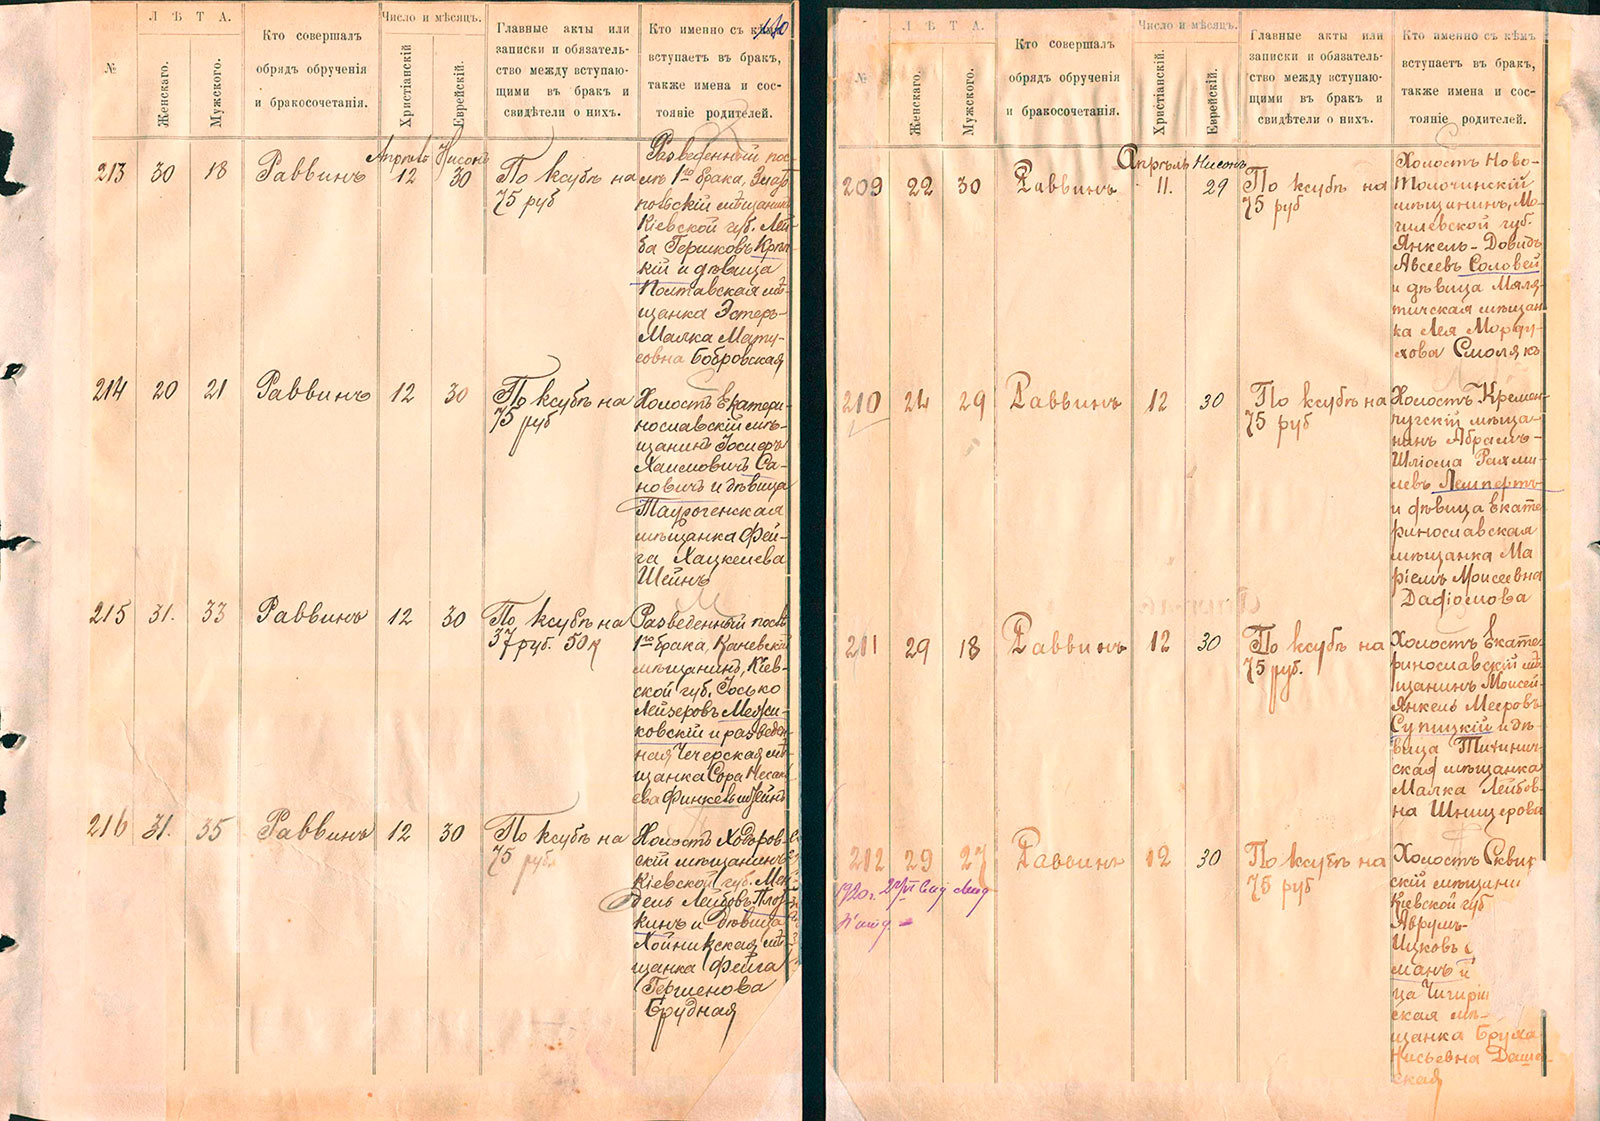 ЛѢТА.
Число и мѣсяцъ.
№
Женскаго.
Мужского.
Кто совершалъ
обрядъ обрученія
и бракосочетанія.
Христіанскій
Еврейскій.
Главные акты или
записки и обязатель-
ство между вступаю-
щими въ бракъ и
свидѣтели о нихъ.
Кто именно съ кѣмъ
вступаетъ въ бракъ,
также имена и сос-
тояніе родителей.
Апрѣль Нисонъ
213 30 18 Раввинъ 12 30
По ксубѣ на
75 руб
Разведенный пос-
лѣ 1го брака, Злато-
польскій мѣщанинъ
Кіевской губ. Лей-
ба Гершковъ Крѣп-
кій и дѣвица
Полтавская мѣ-
щанка Эстеръ-
Малка Мату-
совна Бобровская
214 20 21 Раввинъ 12 30
По ксубѣ на
75 руб
Холостъ Екатери-
нославскій мѣ-
щанинъ Іосифъ
Хаимовичъ Са-
новичъ и дѣвица
Таурогенская
мѣщанка Фей-
га Хацкелева
Шейнъ
215 31. 33 Раввинъ 12 30
По ксубѣ на
37 руб. 50 к
Разведенный послѣ
1го брака, Каневскій
мѣщанинъ, Кіев-
ской губ. Іосько
Лейзеровъ Межи-
ковскій и разведен-
ная Чечерская мѣ-
щанка Сора
ева
216 31. 35 Раввинъ 12 30
По ксубѣ на
75 руб.
Холостъ Ходоров-
скій мѣщанинъ
Кіевской губ. Мен-
дель Лейбовъ Плот-
кинъ и дѣвица
Хойникская мѣ-
щанка Фейга
Гершенова
Брудная
ЛѢТА.
Число и мѣсяцъ.
№
Женскаго.
Мужского.
Кто совершалъ
обрядъ обрученія
и бракосочетанія.
Христіанскій.
Еврейскій.
Главные акты или
записки и обязатель-
ство между вступаю-
щими въ бракъ и
свидѣтели о нихъ.
Кто именно съ кѣмъ
вступаетъ въ бракъ,
также имена и сос-
тояніе родителей.
Апрѣль Нисонъ
209 22 30 Раввинъ 11. 29
По ксубѣ на
75 руб
Холостъ Ново-
Толочинскій
мѣщанинъ, Мо-
гилевской губ.
Янкель-Довидъ
Авсеевъ Соловей
и дѣвица Маля-
тичская мѣщан-
ка Лея Морду-
хова Смолякъ
210 24 29 Раввинъ 12 30
По ксубѣ на
75 руб
Холостъ Кремен-
чугскій мѣща-
нинъ Абрамъ-
Шліома Рахми-
левъ Лемпертъ
и дѣвица Екате-
ринославская
мѣщанка Ма
ріемъ Моисеевна
211 29 18 Раввинъ 12 30
По ксубѣ на
75 руб.
Холостъ Екате-
ринославскій мѣ-
щанинъ Моисей-
Янкель Мееровъ
Супицкій и дѣ-
вица
ская мѣщанка
Малка Лейбов-
на Шницерова
212 29 27 Раввинъ 12 30
По ксубѣ на
75 руб
Холостъ Сквир
скій мѣщани
Кіевской губ
Аврумъ-
Ицковъ
манъ и
ца Чигирин
ская мѣ-
щанка Бруха
Дашев-
ская
1920 г.